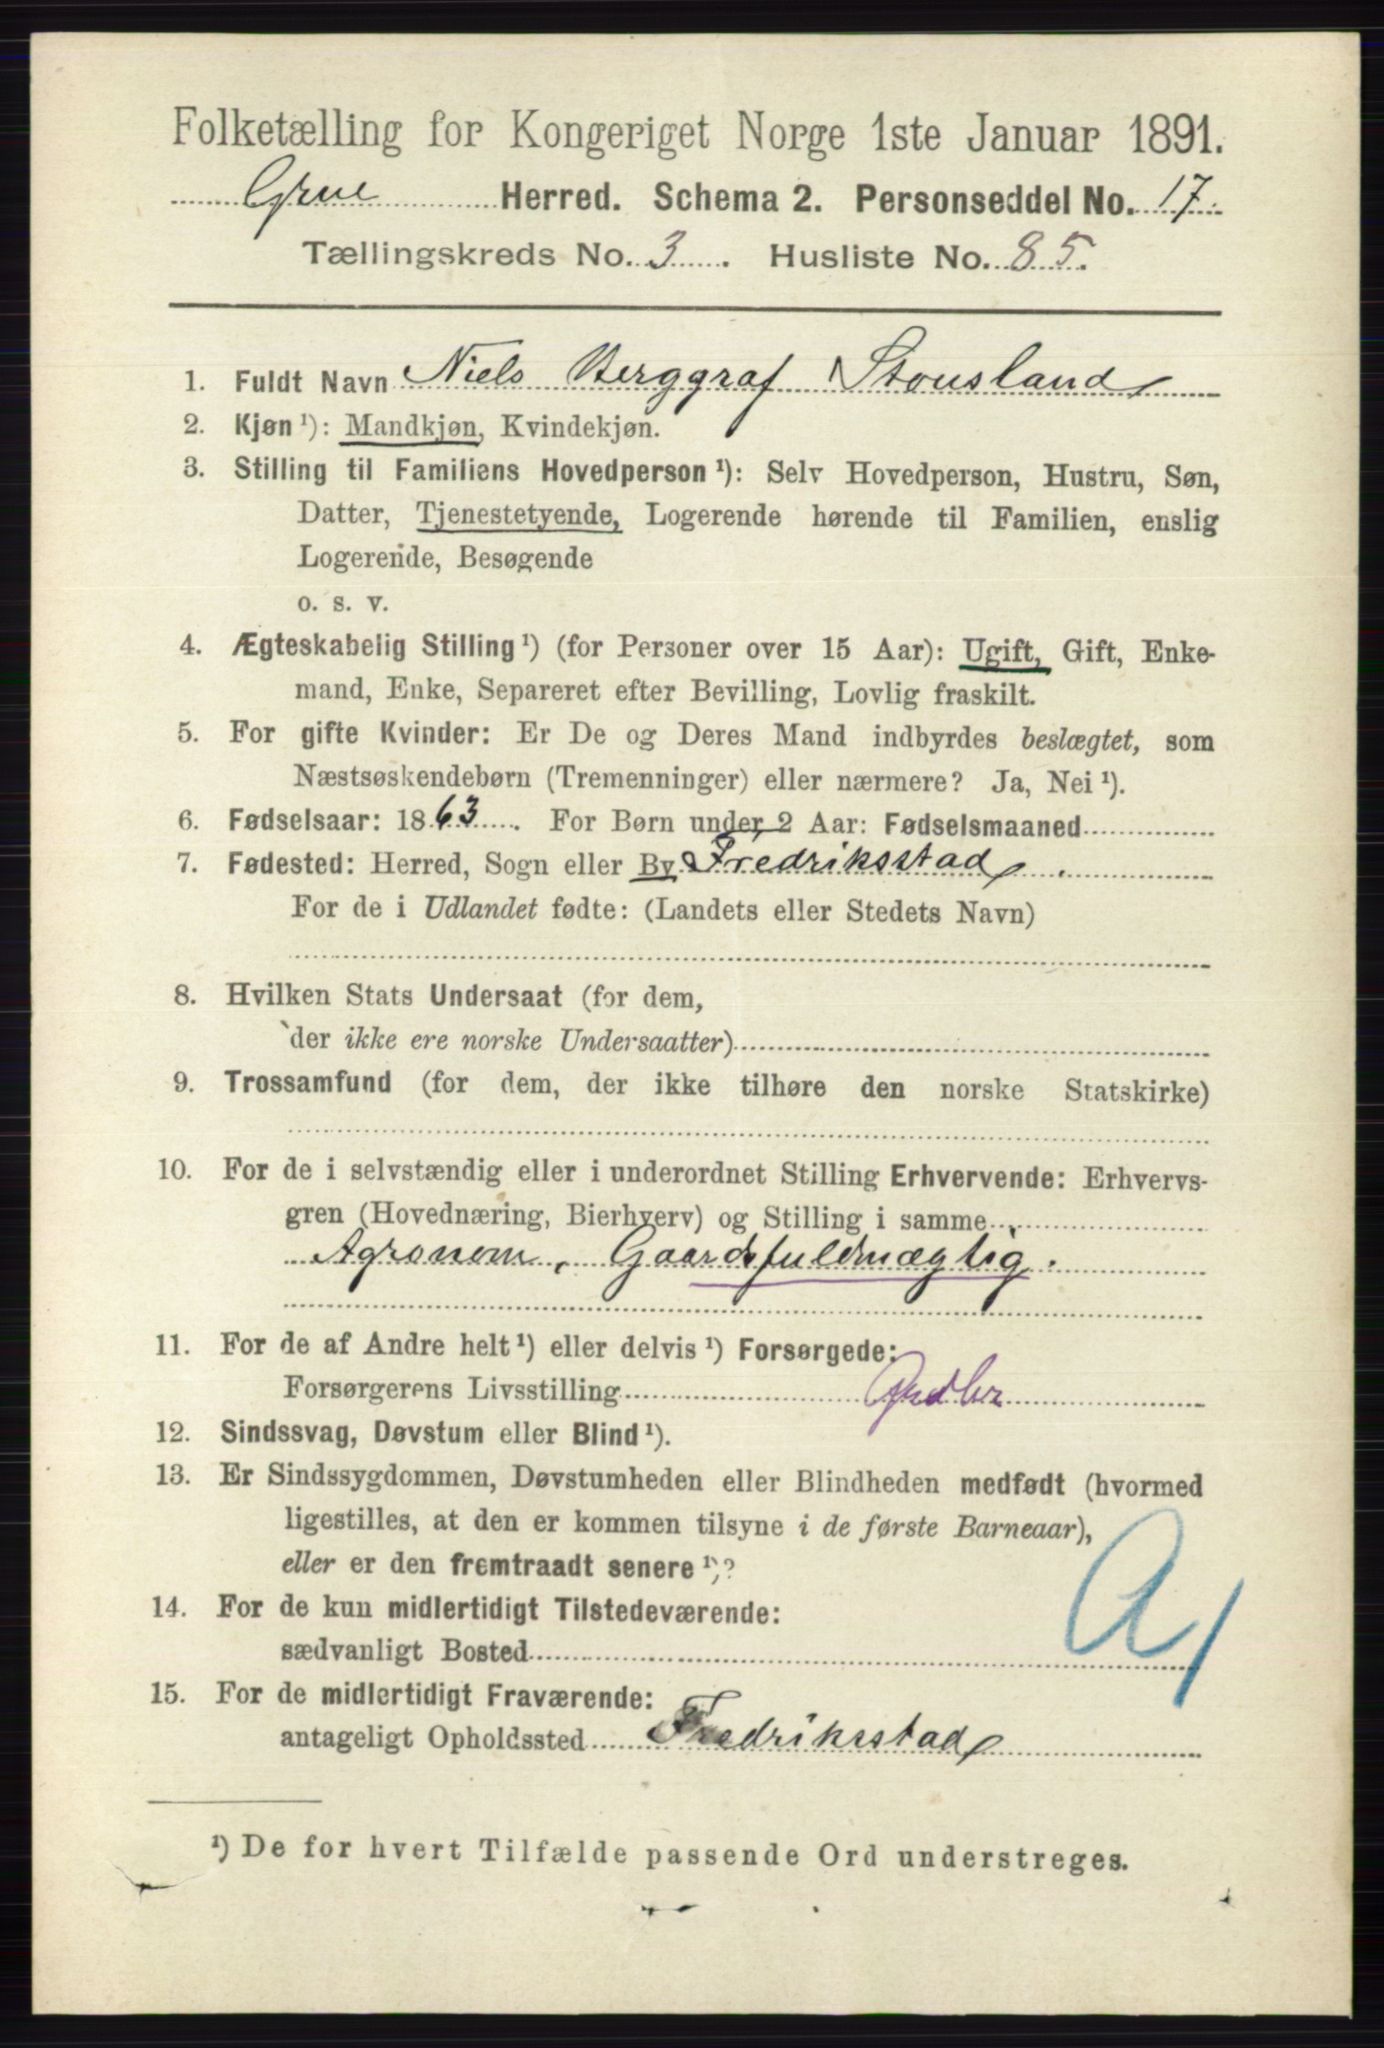 Folketælling for Kongeriget Norge 1ste Januar 1891.
Grue Herred. Schema 2. Personseddel No. 17.
Tællingskreds No. 3. Husliste No. 85.
1. Fuldt Navn Niels Berggraf Stousland
2. Kjøn ¹): Mandkjøn, Kvindekjøn.
3. Stilling til Familiens Hovedperson ¹): Selv Hovedperson, Hustru, Søn,
Datter, Tjenestetyende, Logerende hørende til Familien, enslig
Logerende, Besøgende
o. s. v.
4. Ægteskabelig Stilling ¹) (for Personer over 15 Aar): Ugift, Gift, Enke-
mand, Enke, Separeret efter Bevilling, Lovlig fraskilt.
5. For gifte Kvinder: Er De og Deres Mand indbyrdes beslægtet, som
Næstsøskendebørn (Tremenninger) eller nærmere? Ja, Nei ¹).
6. Fødselsaar: 1863. For Børn under 2 Aar: Fødselsmaaned
7. Fødested: Herred, Sogn eller By Fredriksstad.
For de i Udlandet fødte: (Landets eller Stedets Navn)
8. Hvilken Stats Undersaat (for dem,
der ikke ere norske Undersaatter)
9. Trossamfund (for dem, der ikke tilhøre den norske Statskirke)
10. For de i selvstændig eller i underordnet Stilling Erhvervende: Erhvervs-
gren (Hovednæring, Bierhverv) og Stilling i samme
Agronom, Gaardsfuldmægtig.
11. For de af Andre helt ¹) eller delvis ¹) Forsørgede:
Forsørgerens Livsstilling
12. Sindssvag, Døvstum eller Blind ¹).
13. Er Sindssygdommen, Døvstumheden eller Blindheden medfødt (hvormed
ligestilles, at den er kommen tilsyne i de første Barneaar),
eller er den fremtraadt senere ¹)?
14. For de kun midlertidigt Tilstedeværende:
sædvanligt Bosted
15. For de midlertidigt Fraværende:
antageligt Opholdssted Fredriksstad
¹) De for hvert Tilfælde passende Ord understreges.